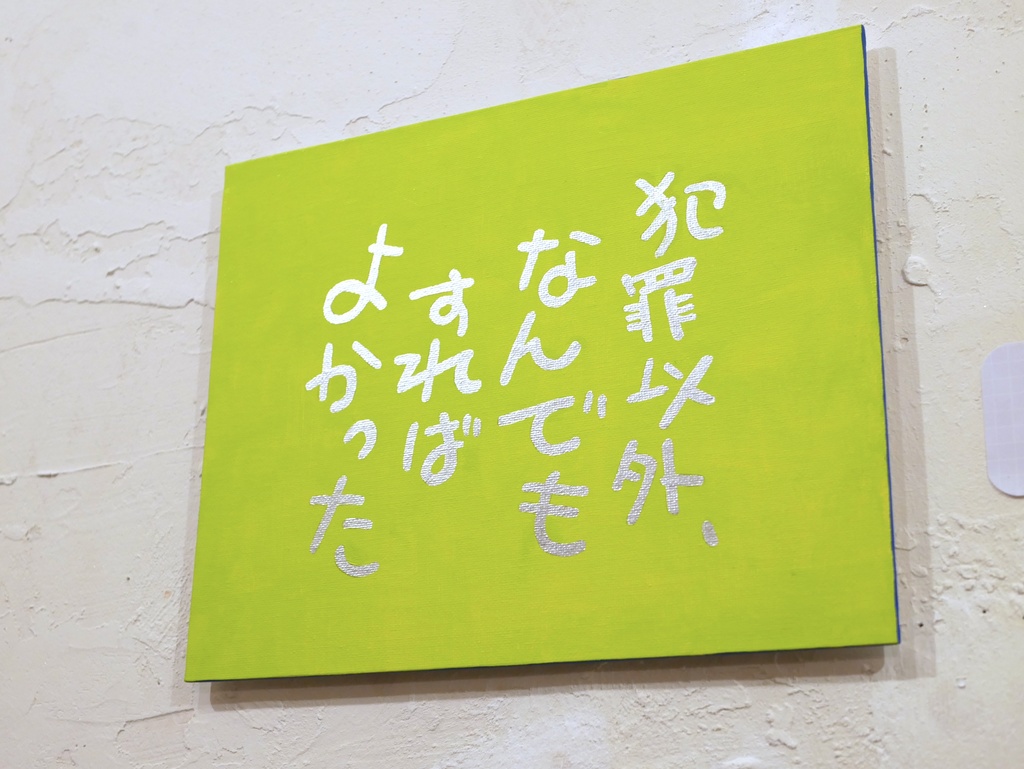 犯罪以外、
なんでも
すれば
よかった